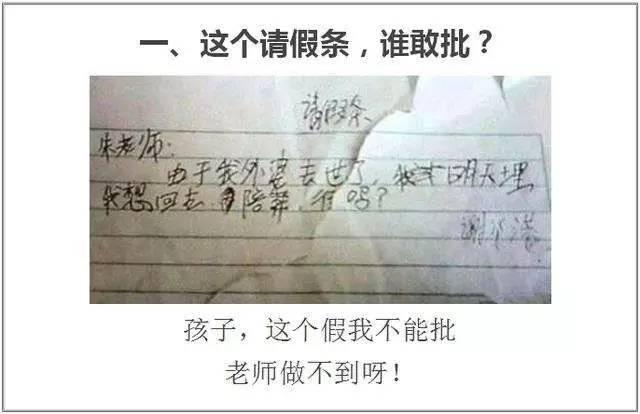 一、这个请假条，谁敢批？
请假条
朱老师：
由于我外婆去世了，我 明天埋
我想回去 陪葬，行吗？
谢
孩子，这个假我不能批
老师做不到呀！